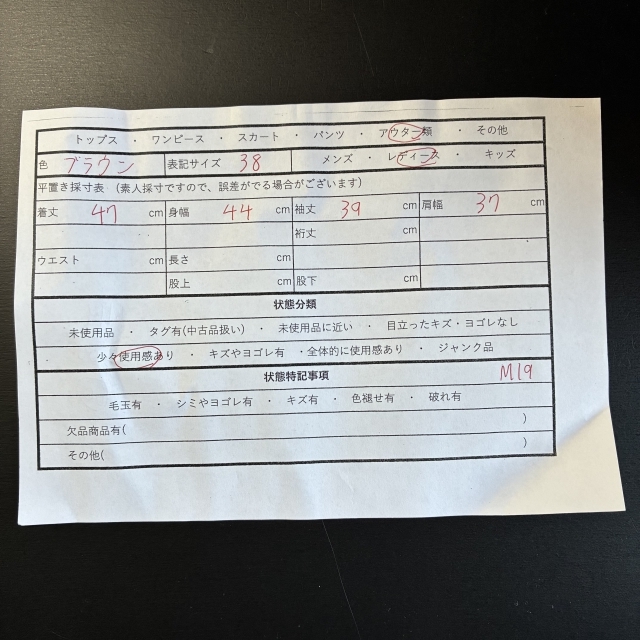 トップス ・ ワンピース ・ スカート ・ パンツ ・ アウター類 ・ その他
色 ブラウン 表記サイズ 38 メンズ ・ レディース ・ キッズ
平置き採寸表 （素人採寸ですので、誤差がでる場合がございます）
着丈 47 cm 身幅 44 cm 袖丈 39 cm 肩幅 37 cm
裄丈 cm
ウエスト cm 長さ cm
股上 cm 股下 cm
状態分類
未使用品 ・ タグ有(中古品扱い) ・ 未使用品に近い ・ 目立ったキズ・ヨゴレなし
少々使用感あり ・ キズやヨゴレ有 ・全体的に使用感あり ・ ジャンク品
状態特記事項 M19
毛玉有 ・ シミやヨゴレ有 ・ キズ有 ・ 色褪せ有 ・ 破れ有
欠品商品有( )
その他( )